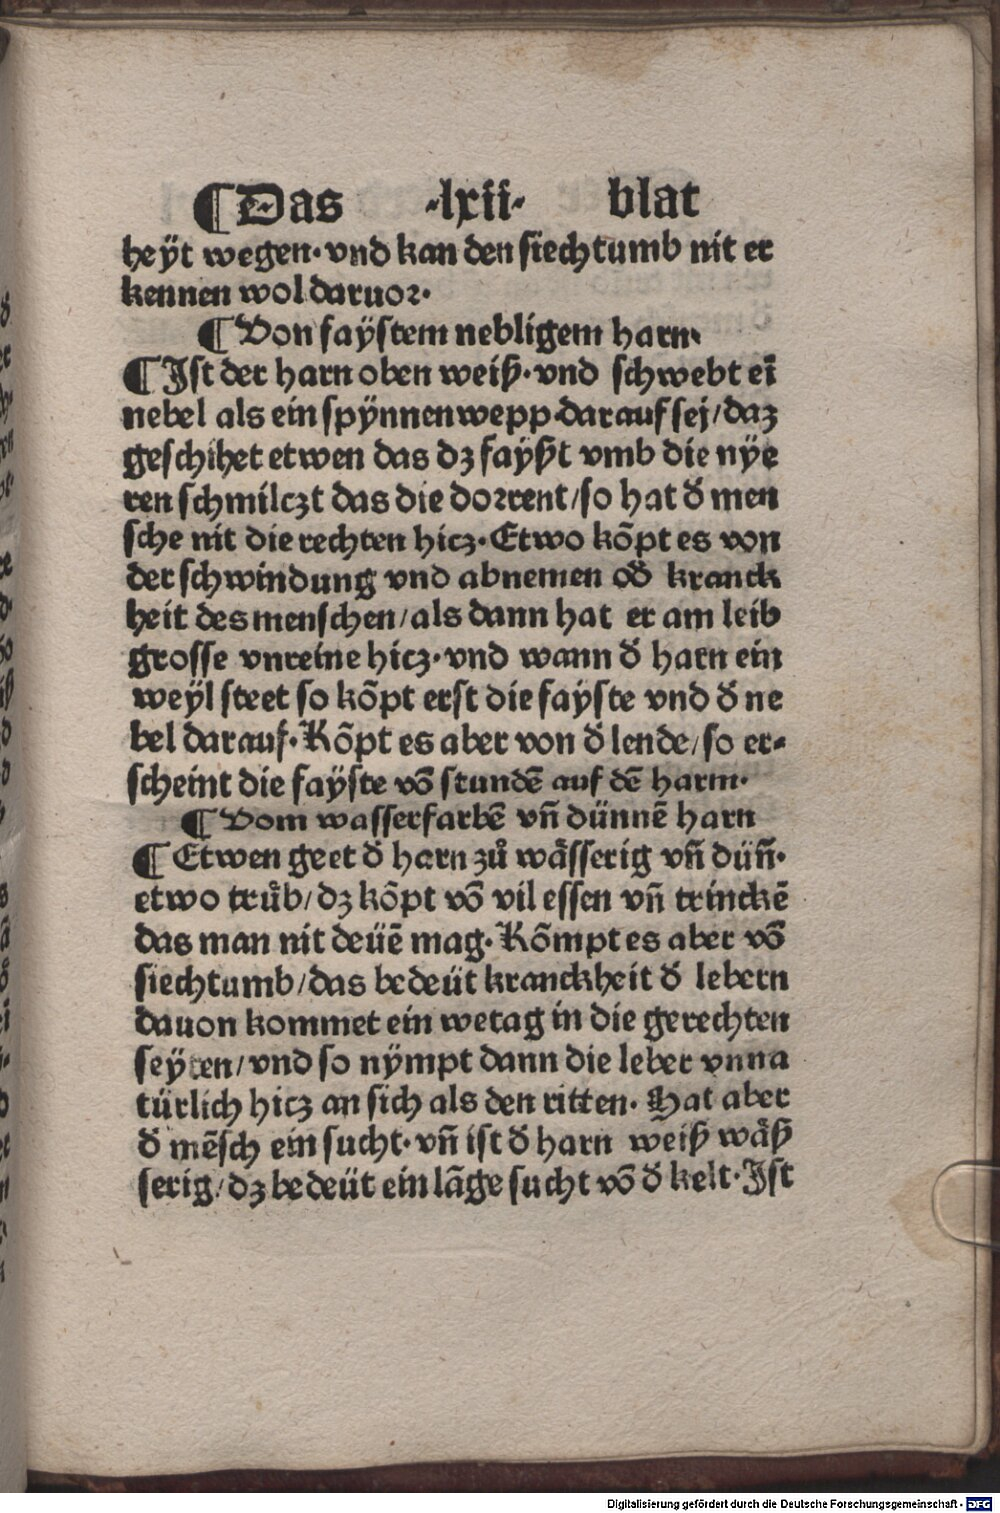 ¶ Das ·lxii· blat
heÿt wegen· vnd kan den siechtumb nit er
kennen wol daruor·
¶ Von faÿstem nebligem harn·
¶ Ist der harn oben weiß· vnd schwebt eī
nebel als ein spÿnnenwepp darauf sej/daz
geschihet etwen das dz faÿßt vmb die nÿe
ren schmilczt das die dorrent/so hat d̄ men
sche nit die rechten hicz· Etwo kōpt es von
der schwindung vnd abnemen od̄ kranck
heit des menschen/als dann hat er am leib
grosse vnreine hicz· vnd wann d̄ harn ein
weÿl steet so kōpt erst die faÿste vnd d̄ ne
bel darauf· Kōpt es aber von d̄ lende/so er⸗
scheint die faÿste vō stundē auf dē harm·
¶ Vom wasserfarbē vn̄ dünnē harn
¶ Etwen geet d̄ harn zů wåsserig vn̄ dün̄·
etwo trůb/dz kōpt vō vil essen vn̄ trinckē
das man nit deüē mag· Kōmpt es aber vō
siechtumb/das bedeüt kranckheit d̄ lebern
dauon kommet ein wetag in die gerechten
seÿten/vnd so nÿmpt dann die leber vnna
türlich hicz an sich als den ritten· Hat aber
d̄ mēsch ein sucht· vn̄ ist d̄ harn weiß wåß
serig/dz bedeüt ein lāge sucht vō d̄ kelt· Ist
Digitalisierung gefördert durch die Deutsche Forschungsgemeinschaft - DFG